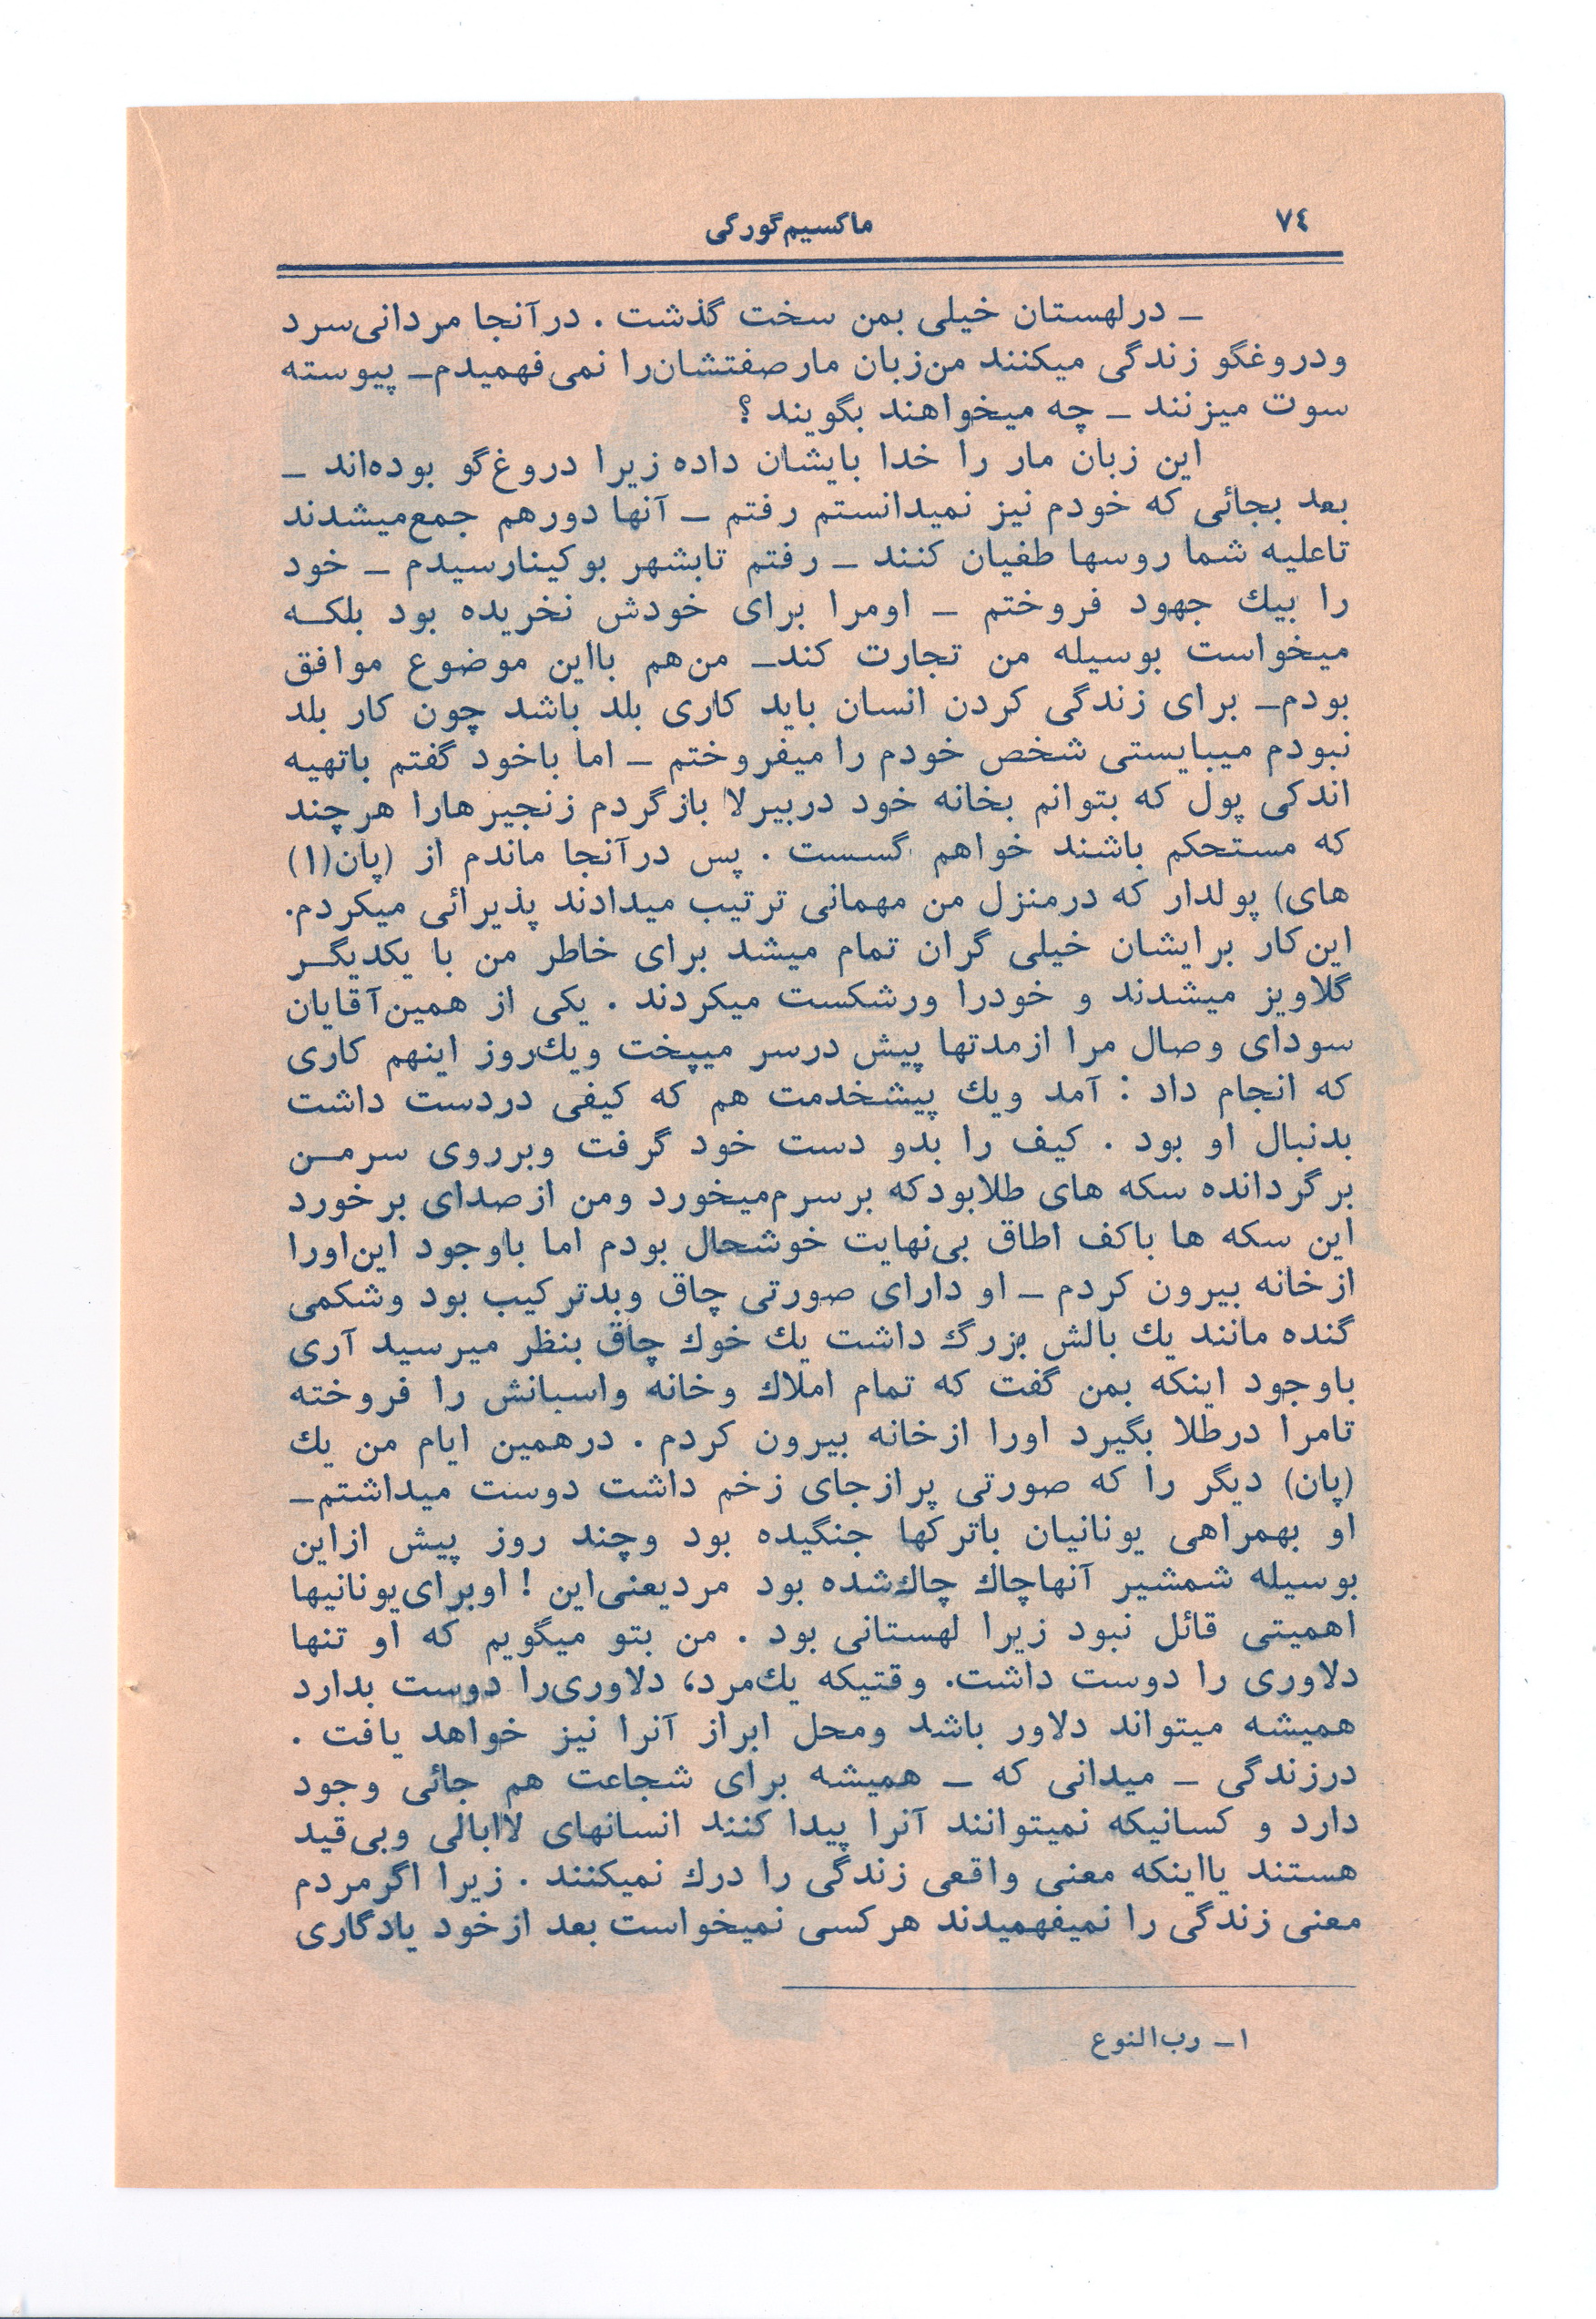 ٧٤
ماکسیم گورکی
ـ در لهستان خیلی بمن سخت گذشت . در آنجا مردانی سرد
ودروغگو زندگی میکنند من زبان مار صفتشان را نمی فهمیدم ـ پیوسته
سوت میزنند ـ چه میخواهند بگویند ؟
این زبان مار را خدا بایشان داده زیرا دروغ گو بوده اند ـ
بعد بجائی که خودم نیز نمیدانستم رفتم ـ آنها دور هم جمع میشدند
تا علیه شما روسها طفیان کنند ـ رفتم تا بشهر بوکینا رسیدم ـ خود
را بیك جهود فروختم ـ اومرا برای خودش نخریده بود بلکـه
میخواست بوسیله من تجارت کند ـ من هم بااین موضوع موافق
بودم ـ برای زندگی کردن انسان باید کاری بلد باشد چون کار بلد
نبودم میبایستی شخص خودم را میفروختم ـ اما باخود گفتم باتهیه
اندکی پول که بتوانم بخانه خود در بیرلا بازگردم زنجیرهارا هرچند
که مستحکم باشند خواهم گسست . پس در آنجا ماندم از (پان(۱)
های) پولدار که در منزل من مهمانی ترتیب میدادند پذیرائی میکردم.
این کار برایشان خیلی گران تمام میشد برای خاطر من با یکدیگـر
گلاویز میشدند و خودرا ورشکست میکردند . یکی از همین آقایان
سودای وصال مرا از مدتها پیش درسر میپخت ویك روز اینهم کاری
که انجام داد : آمد ویك پیشخدمت هم که کیفی دردست داشت
بدنبال او بود . کیف را بدو دست خود گرفت وبرروی سرمـن
برگردانده سکه های طلابود که برسرم میخورد ومن ازصدای برخورد
این سکه ها باکف اطاق بی نهایت خوشحال بودم اما باوجود این اورا
ازخانه بیرون کردم ـ او دارای صورتی چاق وبدترکیب بود وشکمی
گنده مانند یك بالش بزرگ داشت یك خوك چاق بنظر میرسید آری
باوجود اینکه بمن گفت که تمام املاك وخانه واسبانش را فروخته
تامرا درطلا بگیرد اورا ازخانه بیرون کردم . درهمین ایام من یك
(پان) دیگر را که صورتی پرازجای زخم داشت دوست میداشتم ـ
او بهمراهی یونانیان باترکها جنگیده بود وچند روز پیش ازاین
بوسیله شمشیر آنهاچاك چاك شده بود مرد یعنی این ! او برای یونانیها
اهمیتی قائل نبود زیرا لهستانی بود . من بتو میگویم که او تنها
دلاوری را دوست داشت. وقتیکه یك مرد، دلاوری را دوست بدارد
همیشه میتواند دلاور باشد ومحل ابراز آنرا نیز خواهد یافت .
درزندگی ـ میدانی که ـ همیشه برای شجاعت هم جائی وجود
دارد و کسانیکه نمیتوانند آنرا پیدا کنند انسانهای لاابالی وبی قید
هستند یااینکه معنی واقعی زندگی را درك نمیکنند . زیرا اگر مردم
معنی زندگی را نمیفهمیدند هرکسی نمیخواست بعد ازخود یادگاری
۱ـ رب النوع